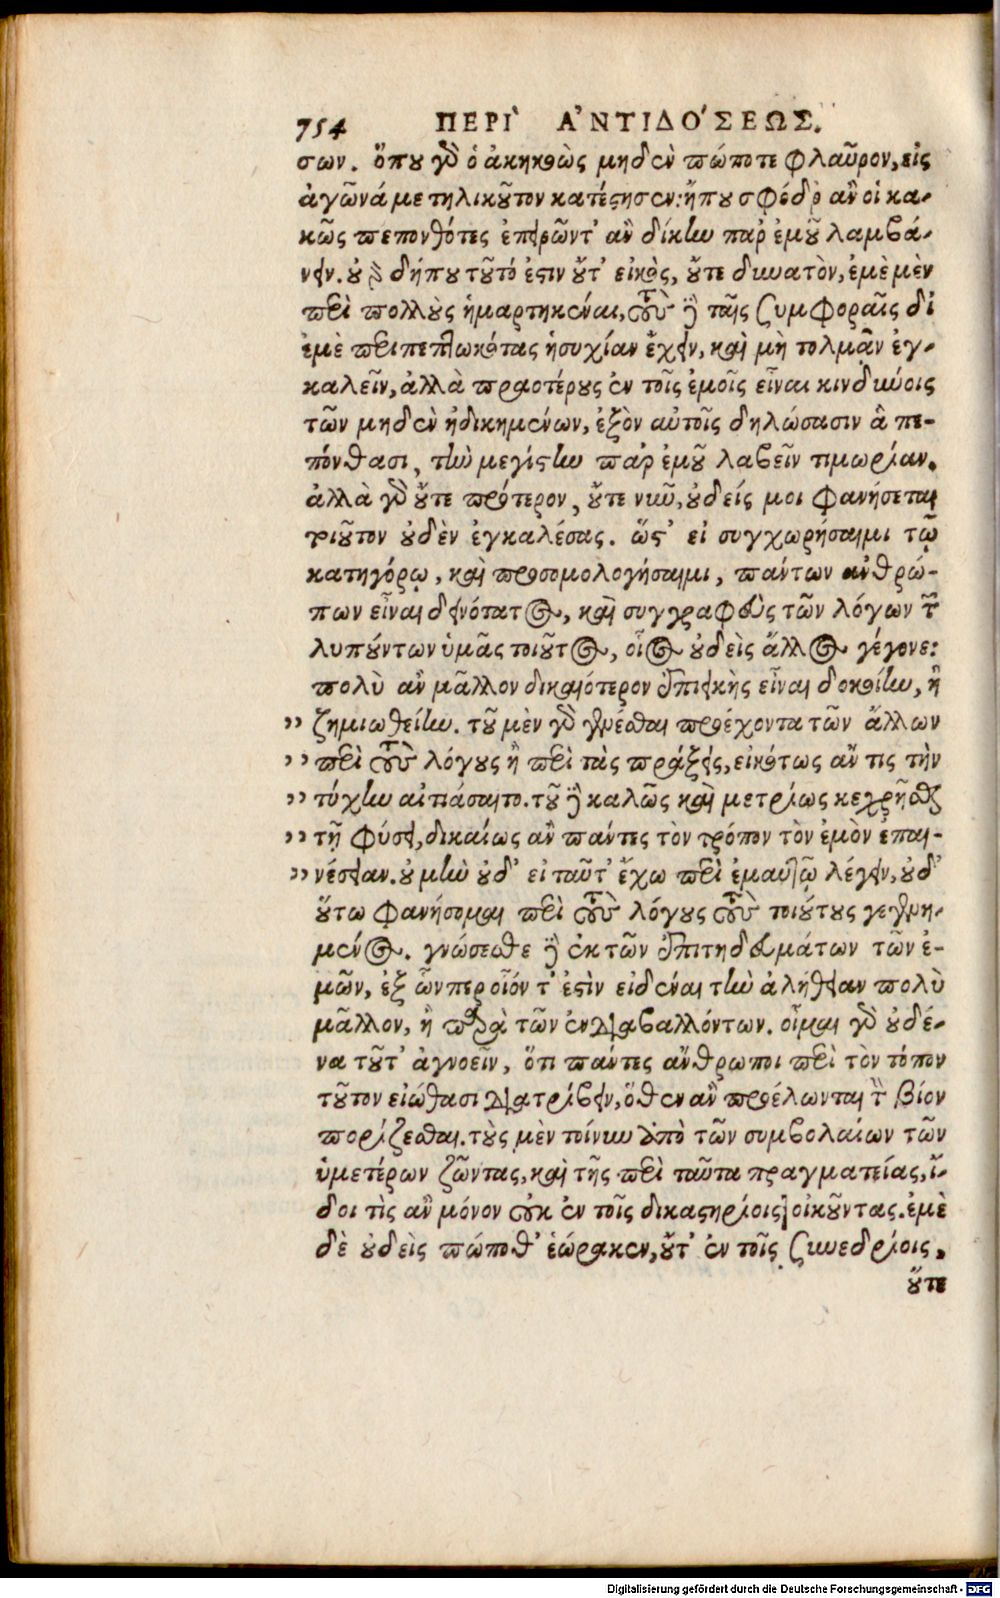 754 ΠΕΡΙ` Ἀ'ΝΤΙΔΟ'ΣΕΩΣ.
σων. ὅπου γὸ ὁ ἀκηκοὼς μηδὲν πώποτε φλαῦρον, εἰς
ἀγῶνά με τηλικοῦτον κατέςησεν: ἤπου σφόδρ' ἂν οἱ κα-
κῶς πεπονθότες ἐπῃρῶντ' ἂν δίκην παρ' ἐμοῦ λαμβά-
νειν. οὐ γὸ δήπου τοῦτό ἐςιν οὔτ' εἰκὸς, οὔτε δυνατὸν, ἐμὲ μὲν
περὶ πολλοὺς ἡμαρτηκέναι, τοὺς δὲ ταῖς συμφοραῖς δι'
ἐμὲ περιπεπτωκότας ἡσυχίαν ἔχειν, καὶ μὴ τολμᾶν ἐγ-
καλεῖν, ἀλλὰ πραοτέρους ἐν τοῖς ἐμοῖς εἶναι κινδύνοις
τῶν μηδὲν ἠδικημένων, ἐξὸν αὐτοῖς δηλώσασιν ἃ πε-
πόνθασι, τὴν μεγίςην παρ' ἐμοῦ λαβεῖν τιμωρίαν.
ἀλλὰ γὸ οὔτε πρότερον, οὔτε νῦν, οὐδείς μοι φανήσεται
τοιοῦτον οὐδὲν ἐγκαλέσας. ὥς' εἰ συγχωρήσαιμι τῷ
κατηγόρῳ, καὶ προσομολογήσαιμι, πάντων ἀνθρώ-
πων εἶναι δεινότατος, καὶ συγγραφεὺς τῶν λόγων τῶν
λυπούντων ὑμᾶς τοιοῦτος, οἷος οὐδεὶς ἄλλος γέγονε:
πολὺ ἂν μᾶλλον δικαιότερον ἐπιεικὴς εἶναι δοκοίην, ἢ
,, ζημιωθείην. τοῦ μὲν γὸ γενέσθαι προέχοντα τῶν ἄλλων
,, περὶ τοὺς λόγους ἢ περὶ τὰς πράξεις, εἰκότως ἄν τις τὴν
,, τύχην αἰτιάσαιτο. τοῦ δὲ καλῶς καὶ μετρίως κεχρῆσθαι
,, τῇ φύσει, δικαίως ἂν πάντες τὸν τρόπον τὸν ἐμὸν ἐπαι-
,, νέσειαν. οὐ μὴν οὐδ' εἰ ταῦτ' ἔχω περὶ ἐμαυτῷ λέγειν, οὐδ'
οὕτω φανήσομαι περὶ τοὺς λόγους τοὺς τοιούτους γεγενη-
μένος. γνώσεσθε δὲ ἐκ τῶν ἐπιτηδευμάτων τῶν ἐ-
μῶν, ἐξ ὧνπερ οἷόν τ' ἐςὶν εἰδέναι τὴν ἀλήθειαν πολὺ
μᾶλλον, ἢ παρὰ τῶν ἐνδιαβαλλόντων. οἶμαι γὸ οὐδέ-
να τοῦτ' ἀγνοεῖν, ὅτι πάντες ἄνθρωποι περὶ τὸν τόπον
τοῦτον εἰώθασι διατρίβειν, ὅθεν ἂν προέλωνται τὸν βίον
πορίζεσθαι. τοὺς μὲν τοίνυν ἀπὸ τῶν συμβολαίων τῶν
ὑμετέρων ζῶντας, καὶ τῆς περὶ ταῦτα πραγματείας, ἴ-
δοι τὶς ἂν μόνον οὐκ ἐν τοῖς δικαςηρίοις οἰκοῦντας. ἐμὲ
δὲ οὐδεὶς πώποθ' ἑώρακεν, οὔτ' ἐν τοῖς συνεδρίοις,
οὔτε
Digitalisierung gefördert durch die Deutsche Forschungsgemeinschaft - DFG